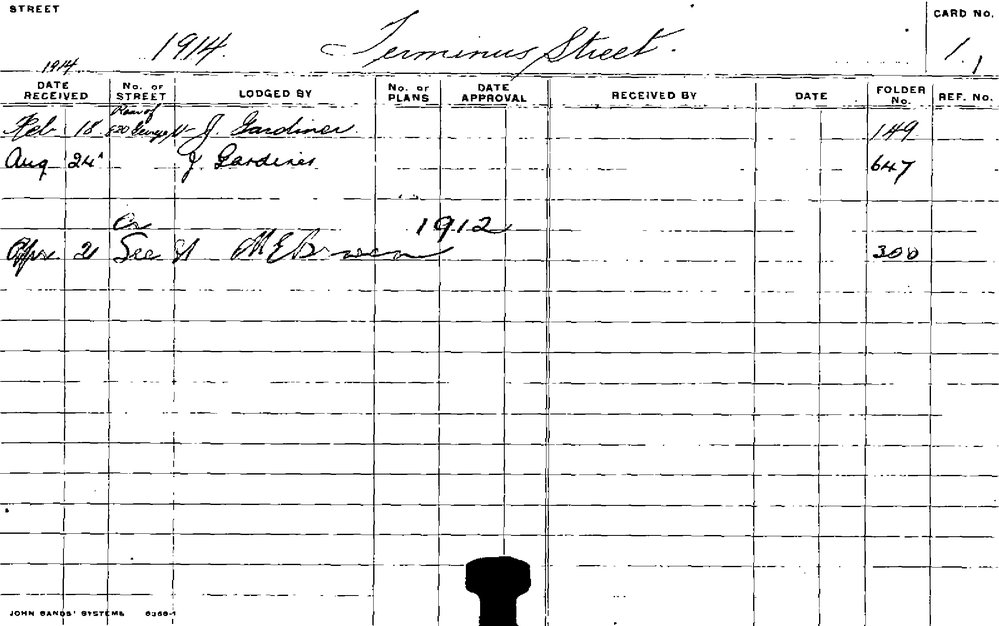 STREET
CARD NO.
1914. Terminus Street. 1.1
1914
DATE RECEIVED No. OF STREET LODGED BY No. OF PLANS DATE APPROVAL RECEIVED BY DATE FOLDER No. REF. No.
Rear of
Feb 18 820 George St J. Gardiner 149
Aug 24 J. Gardiner 647
Cr 1912
Apr 21 See St M E Brown 300
JOHN SANDS' SYSTEMS 6368-1